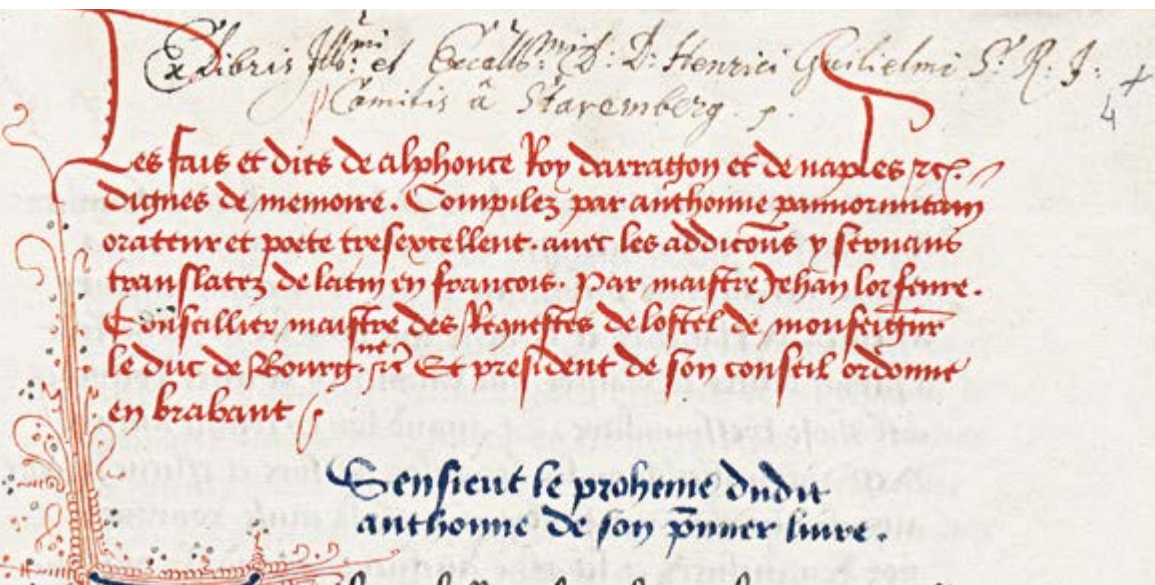 Ex Libris Ill.mi et Excell.mi D: D: Henrici Guilielmi S. R. J:
Comitis â Staremberg.
4
Les fais et dits de alphonce Roy darragon et de naples etc.
dignes de memoire. Compilez par anthonne pannormitam
orateur et poete tresexcellent. auec les addicons y seruans
translatez de latin en francois. Par maistre Jehan lorfeure.
Conseillier maistre des Requestes de lostel de monseigneur
le duc de Bourg.ne etc Et president de son conseil ordonne
en brabant
Sensieut le proheme dudit
anthonne de son p̄mier liure.